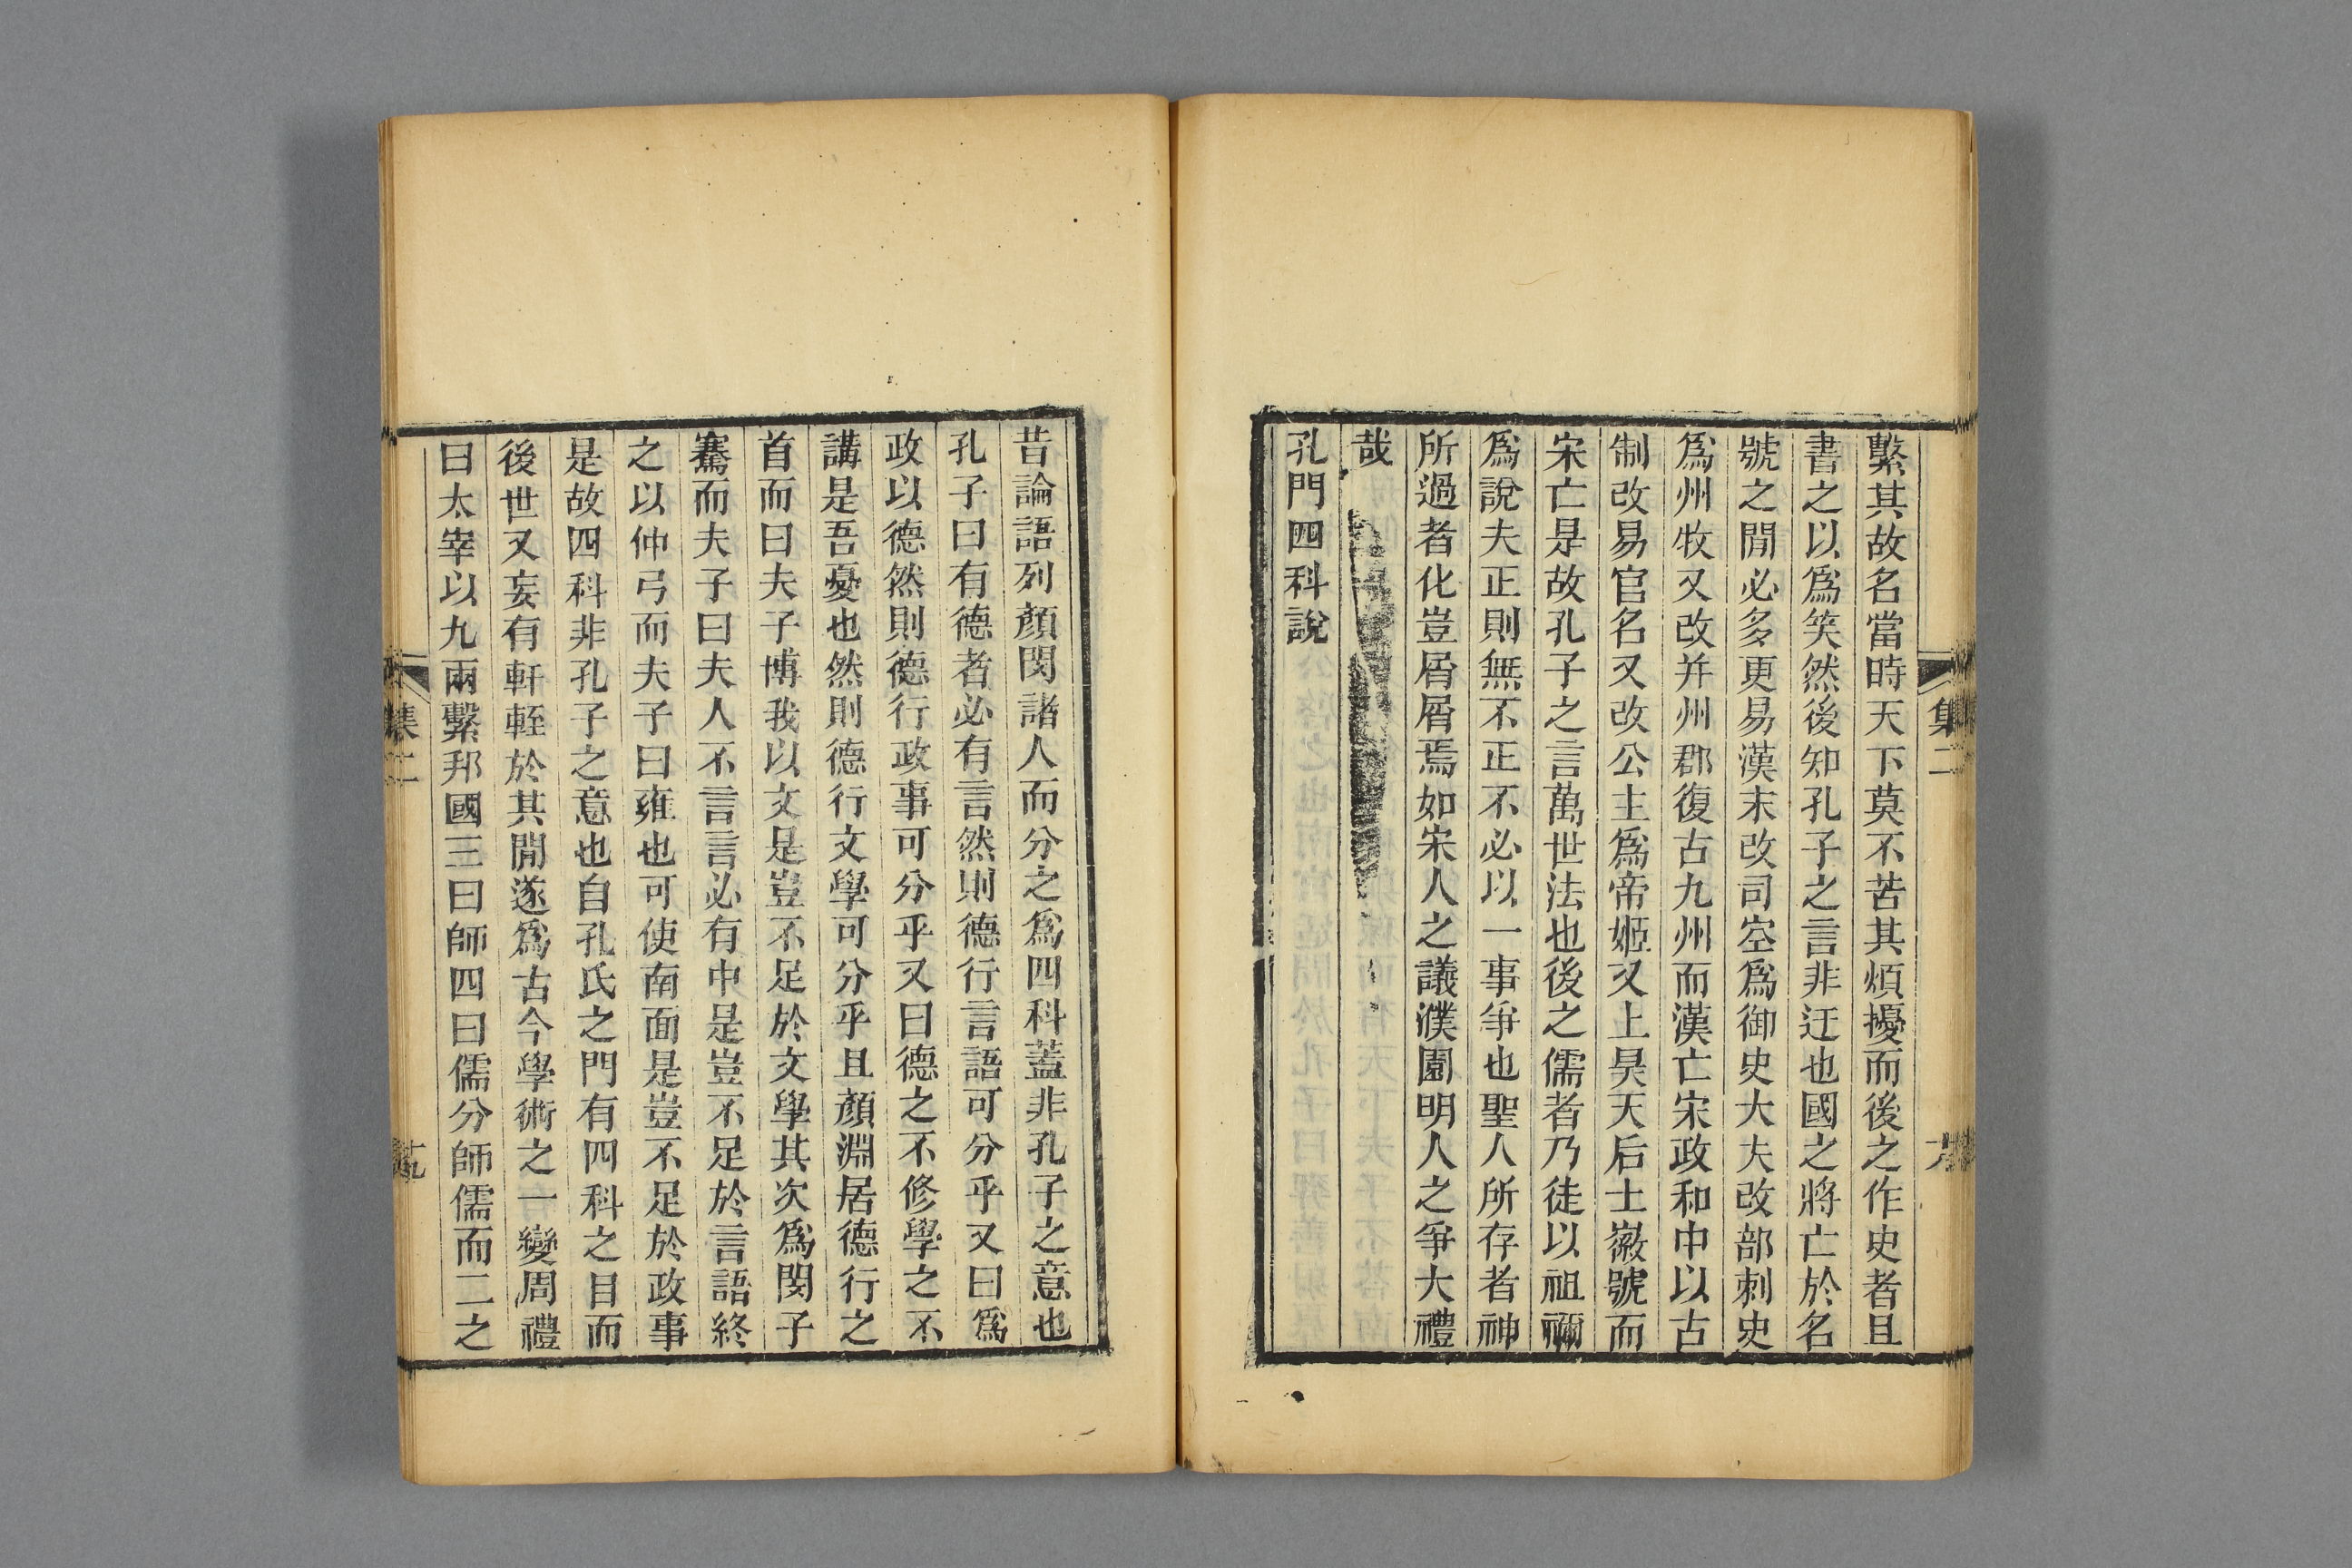 繫其故名當時天下莫不苦其煩擾而後之作史者且
書之以爲笑然後知孔子之言非迂也國之將亡於名
號之閒必多更易漢末改司空爲御史大夫改部刺史
爲州牧又改并州郡復古九州而漢亡宋政和中以古
制改易官名又改公主爲帝姬又上昊天后土徽號而
宋亡是故孔子之言萬世法也後之儒者乃徒以祖禰
爲說夫正則無不正不必以一事爭也聖人所存者神
所過者化豈屑屑焉如宋人之議濮園明人之爭大禮
哉
孔門四科說
昔論語列顏閔諸人而分之爲四科蓋非孔子之意也
孔子曰有德者必有言然則德行言語可分乎又曰爲
政以德然則德行政事可分乎又曰德之不修學之不
講是吾憂也然則德行文學可分乎且顏淵居德行之
首而曰夫子博我以文是豈不足於文學其次爲閔子
騫而夫子曰夫人不言言必有中是豈不足於言語終
之以仲弓而夫子曰雍也可使南面是豈不足於政事
是故四科非孔子之意也自孔氏之門有四科之目而
後世又妄有軒輊於其閒遂爲古今學術之一變周禮
曰太宰以九兩繫邦國三曰師四曰儒分師儒而二之
集二
集二